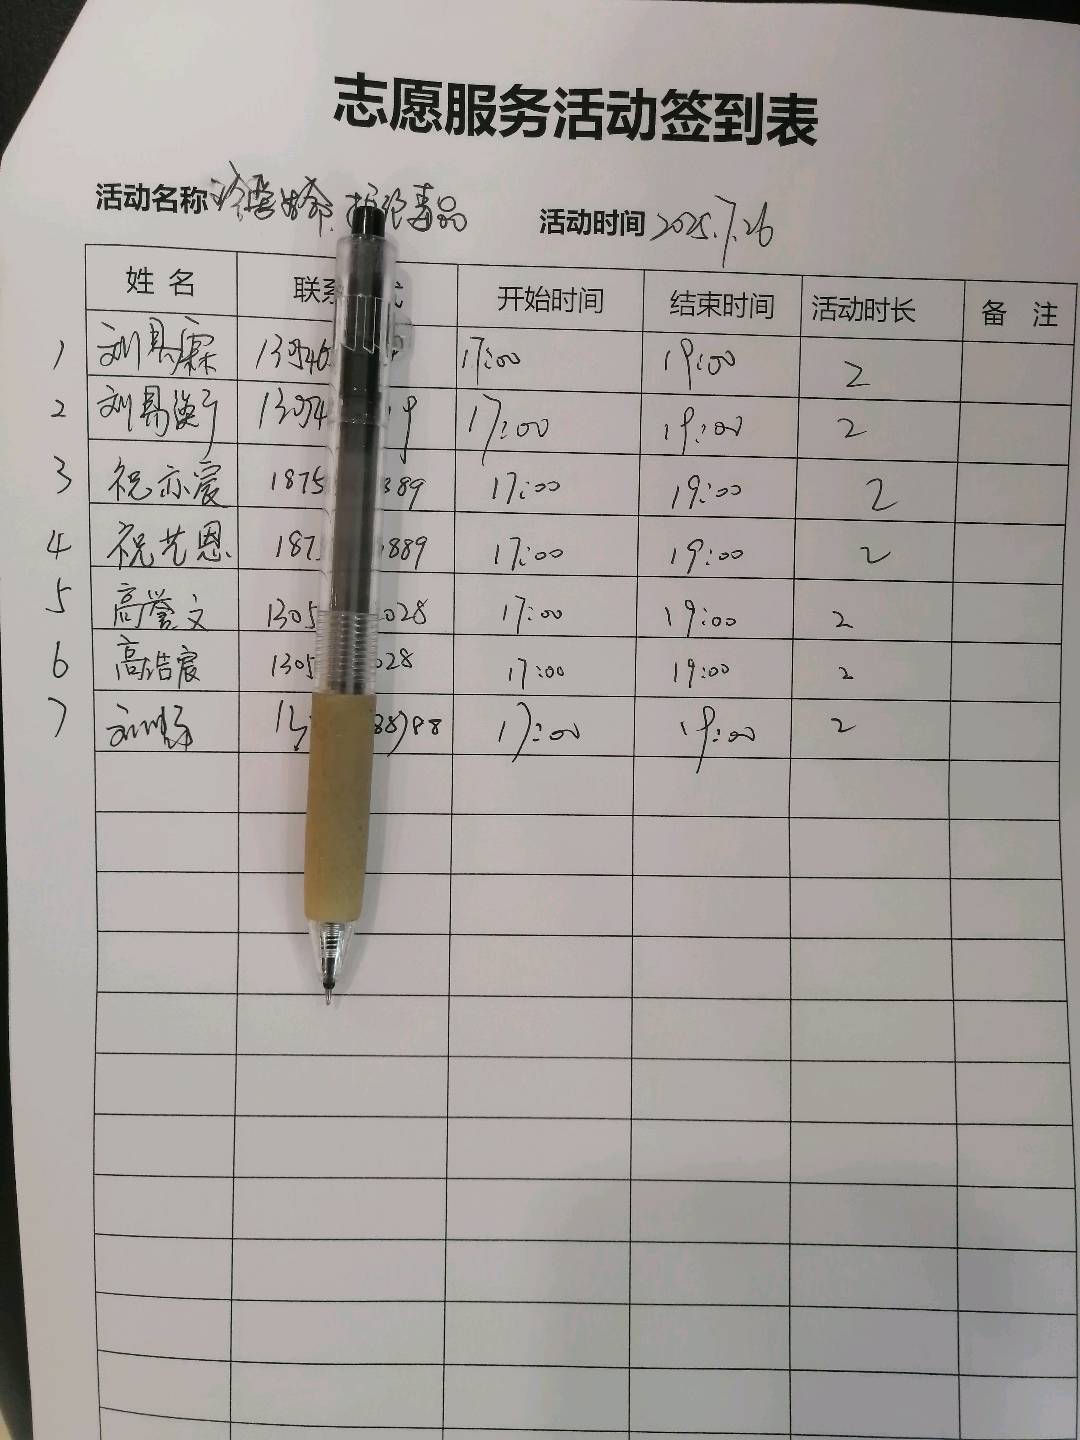 志愿服务活动签到表
活动名称 毒品 活动时间 2025.7.26
姓 名 联系 开始时间 结束时间 活动时长 备 注
1 刘 霖 17:00 19:00 2
2 刘 17:00 19:00 2
3 祝亦宸 1875 389 17:00 19:00 2
4 祝艺恩 187 889 17:00 19:00 2
5 高誉文 1305 028 17:00 19:00 2
6 高浩宸 1305 028 17:00 19:00 2
7 88798 17:00 19:00 2